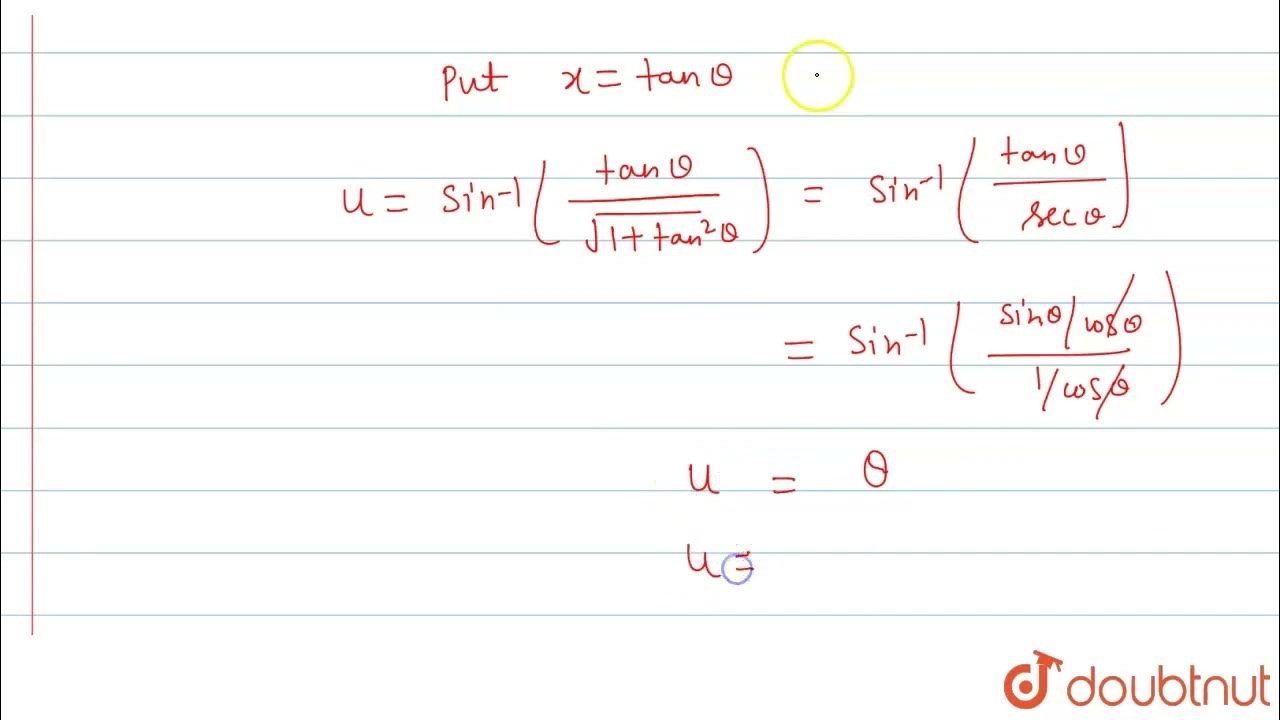 Put x = tanθ
u = sin-1 ( tanθ / √1+tan²θ ) = sin-1 ( tanθ / secθ )
= sin-1 ( sinθ/cosθ / 1/cosθ )
u = θ
u =
doubtnut